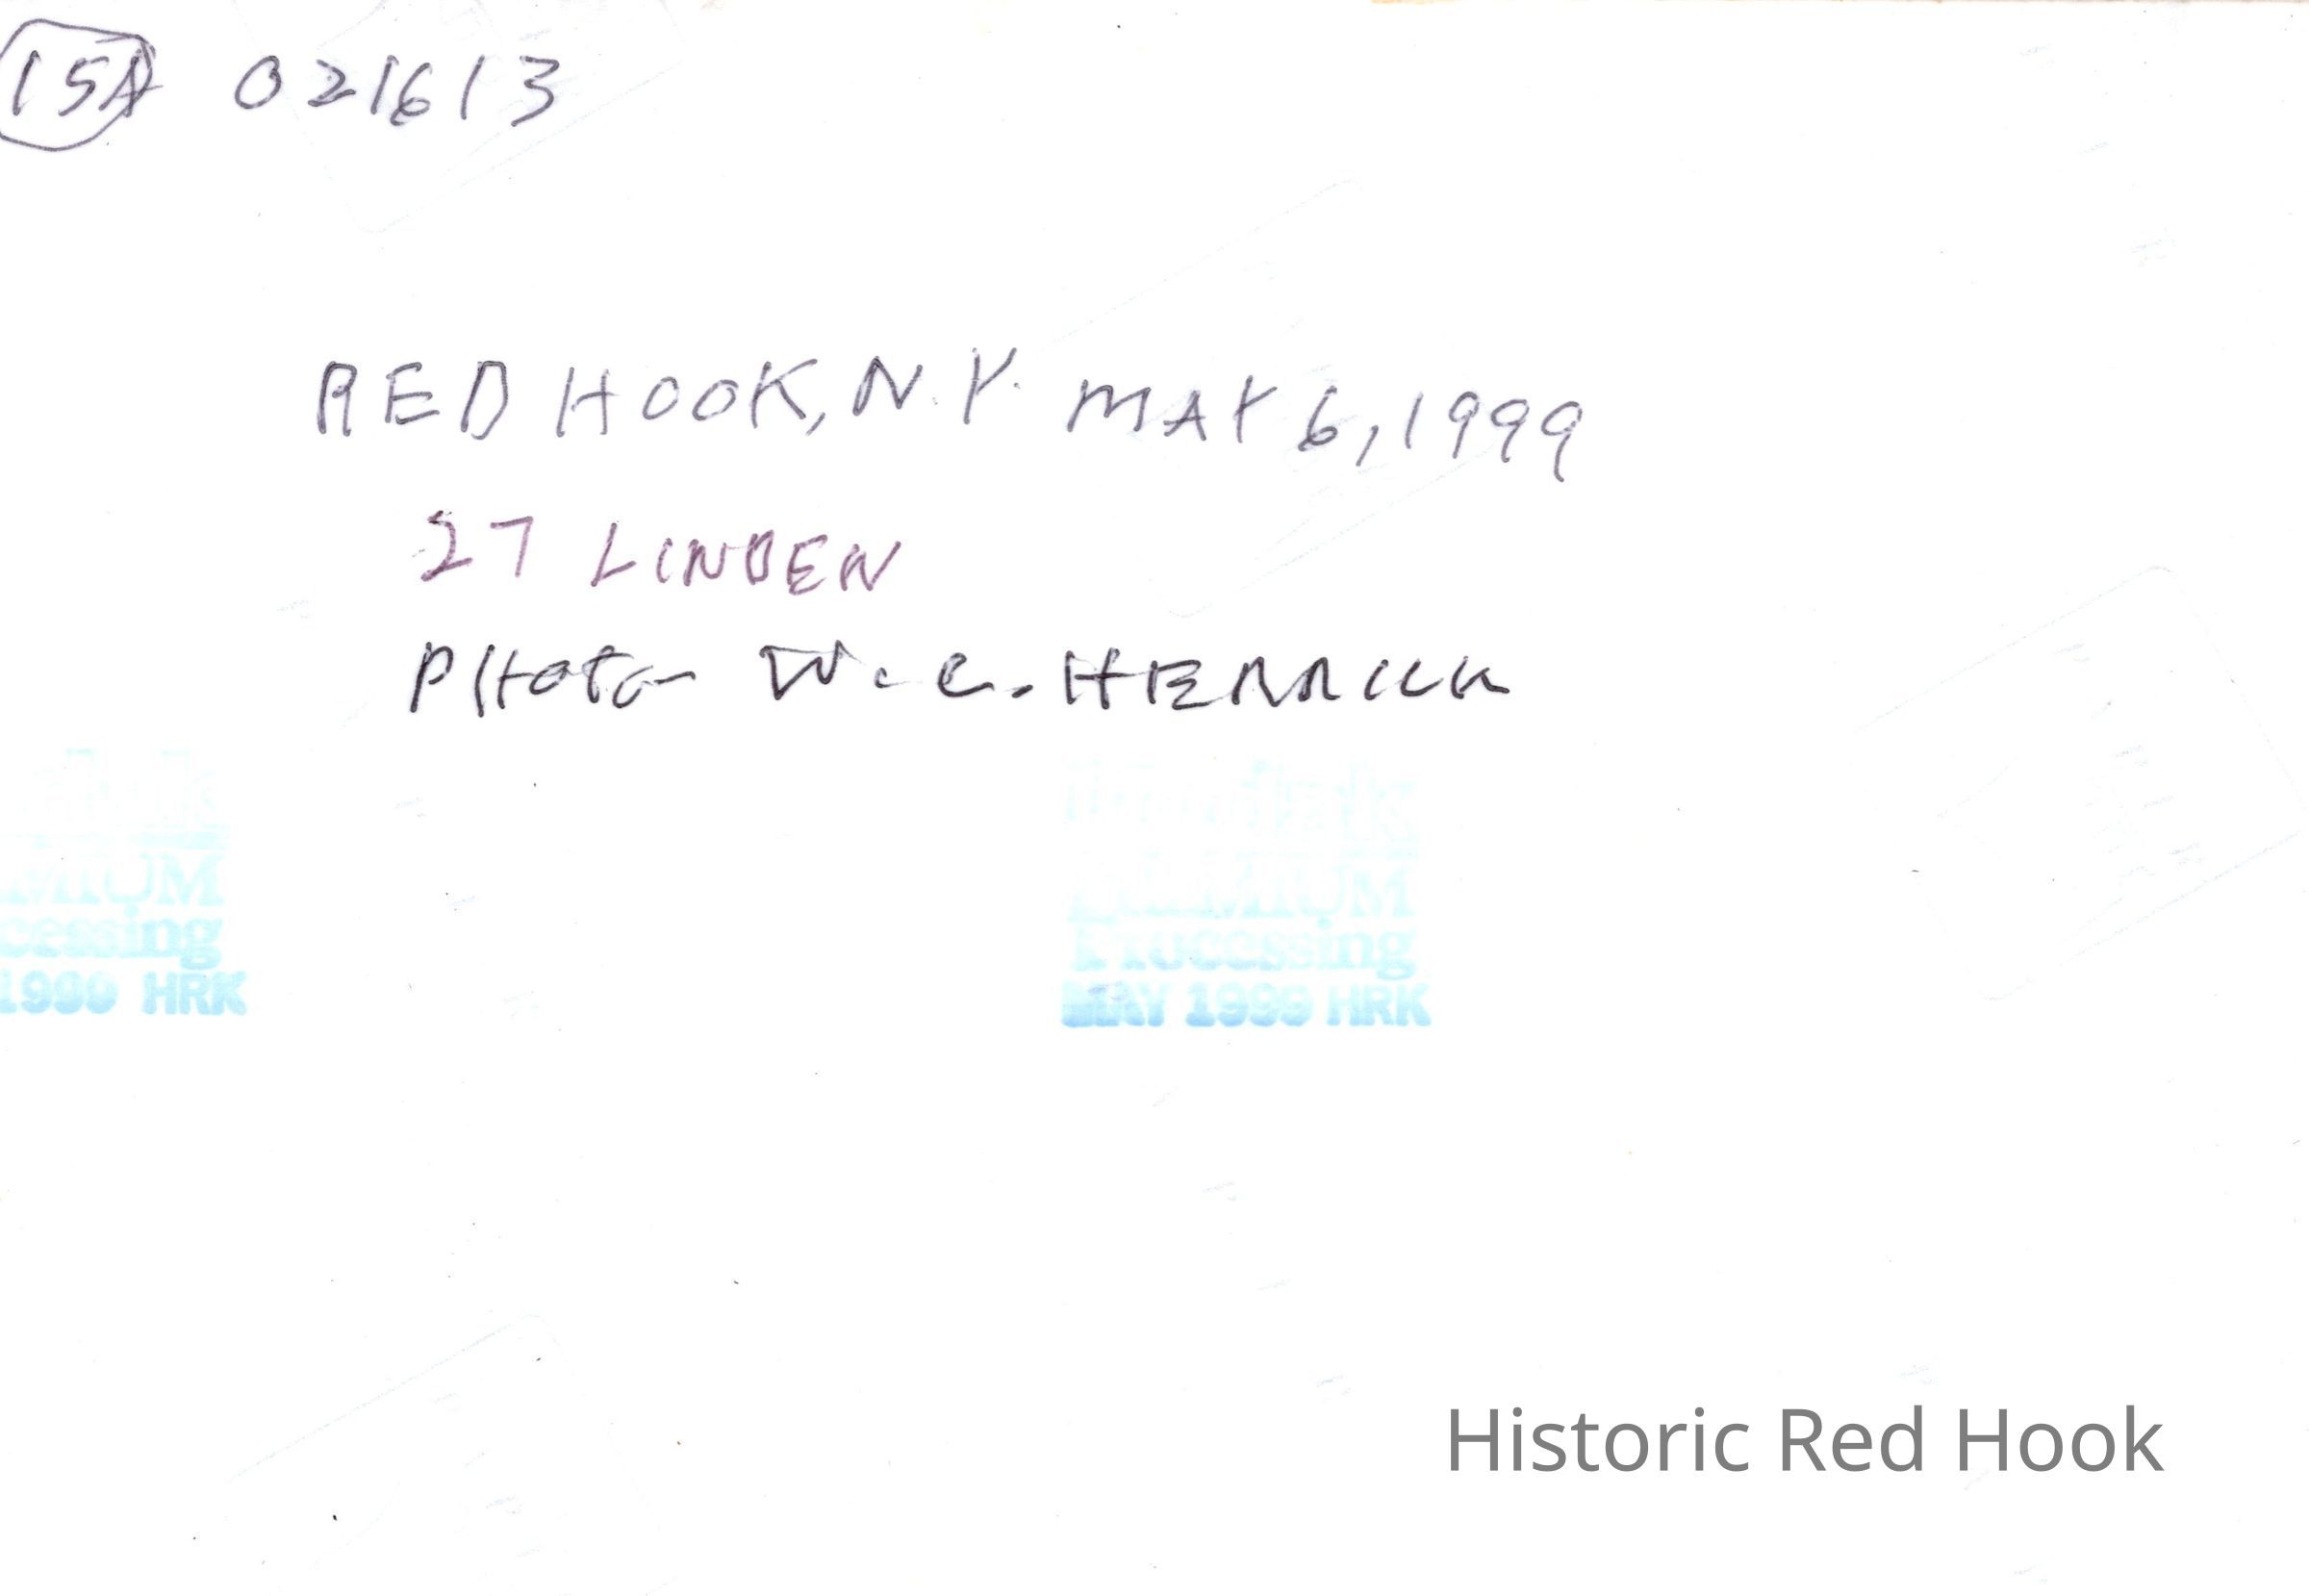 15A 021613
RED HOOK, N.Y. MAY 6, 1999
27 LINDEN
PHOTO W. C. HERRICK
MIUM
cessing
1999 HRK
PREMIUM
Processing
MAY 1999 HRK
Historic Red Hook